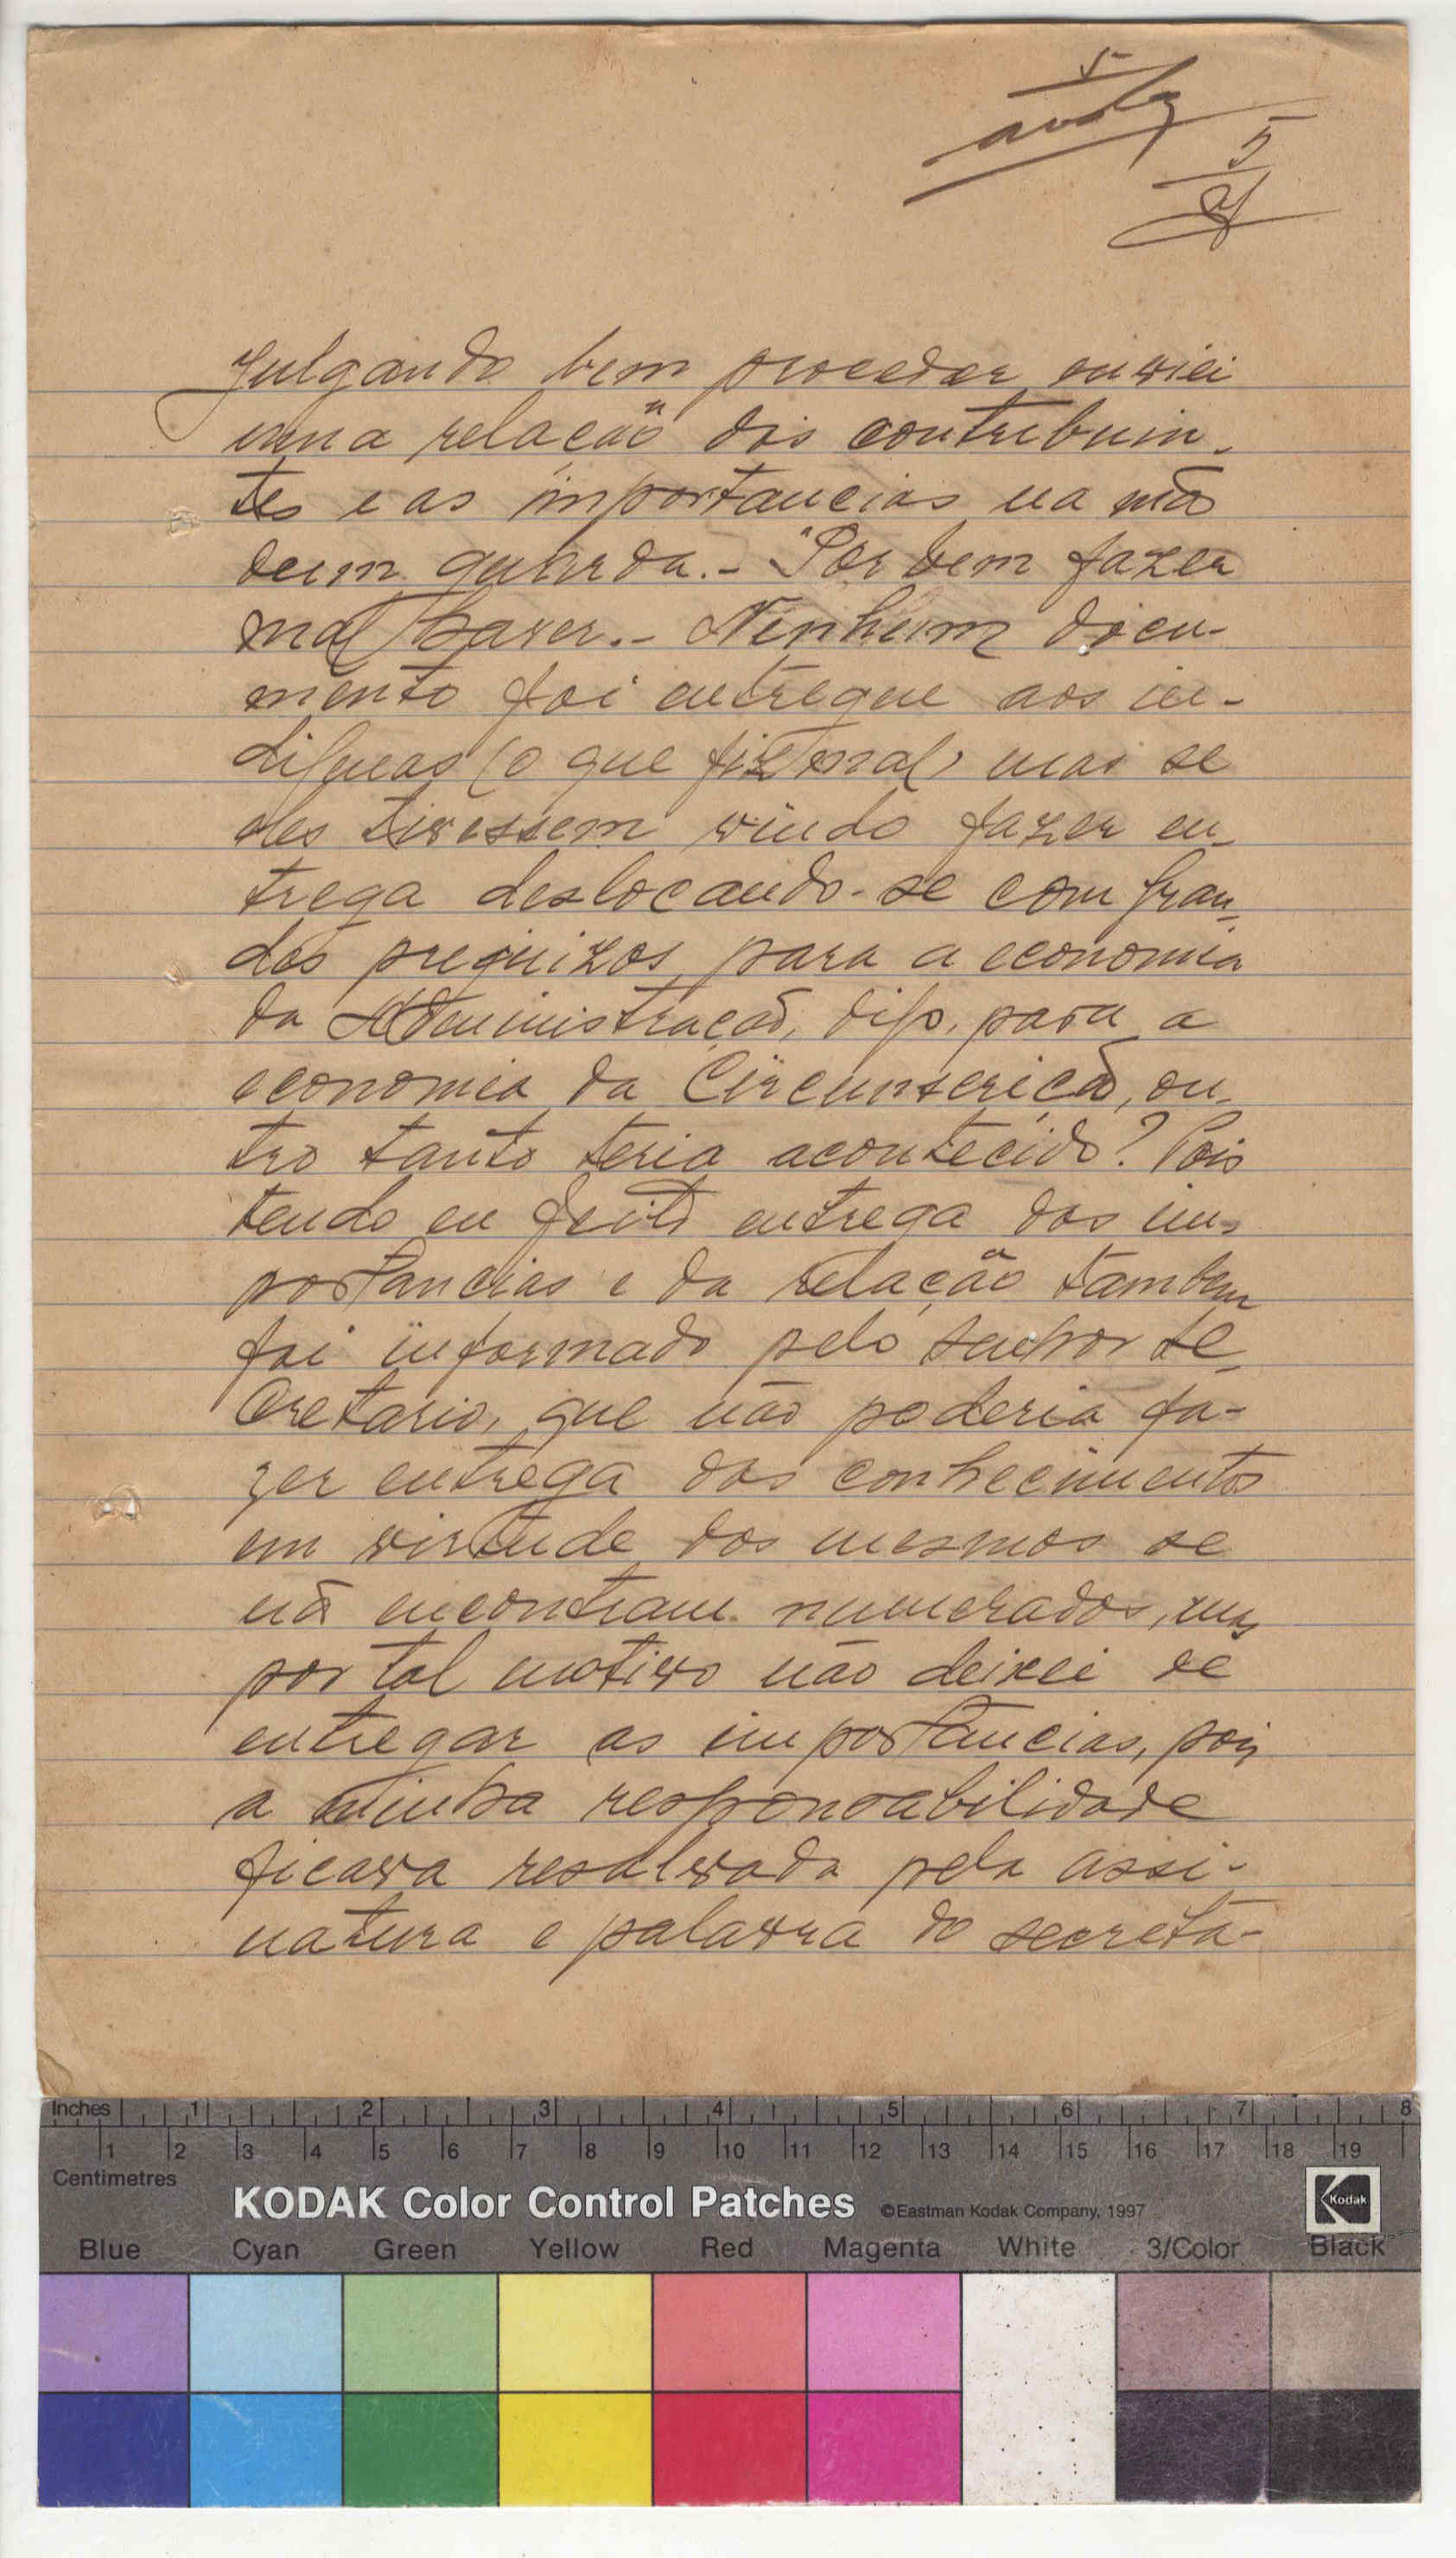 5
5
Julgando bem proceder enviei
uma relação dos contribuin-
tes e as importancias na mão
deum guarda.- "Por bem fazer
mal haver.- Nenhum docu-
mento foi entregue aos in-
digenas (o que fiz mal) mas se
eles tivessem vindo fazer en-
trega deslocando-se com gran-
des prejuizos para a economia
da Administração, digo, para a
economia da Circunscrição, ou-
tro tanto teria acontecido? Pois
tendo eu feito entrega das im-
portancias e da relação tambem
foi informado pelo senhor se-
cretario, que não poderia fa-
zer entrega dos conhecimentos
em virtude dos mesmos se
não encontram numerados, mas
por tal motivo não deixei de
entregar as importancias, pois
a minha responsabilidade
ficava resalvada pela assi-
natura e palavra do secretá-
Inches 1 2 3 4 5 6 7 8
1 2 3 4 5 6 7 8 9 10 11 12 13 14 15 16 17 18 19
Centimetres
KODAK Color Control Patches ©Eastman Kodak Company, 1997 Kodak
Blue Cyan Green Yellow Red Magenta White 3/Color Black